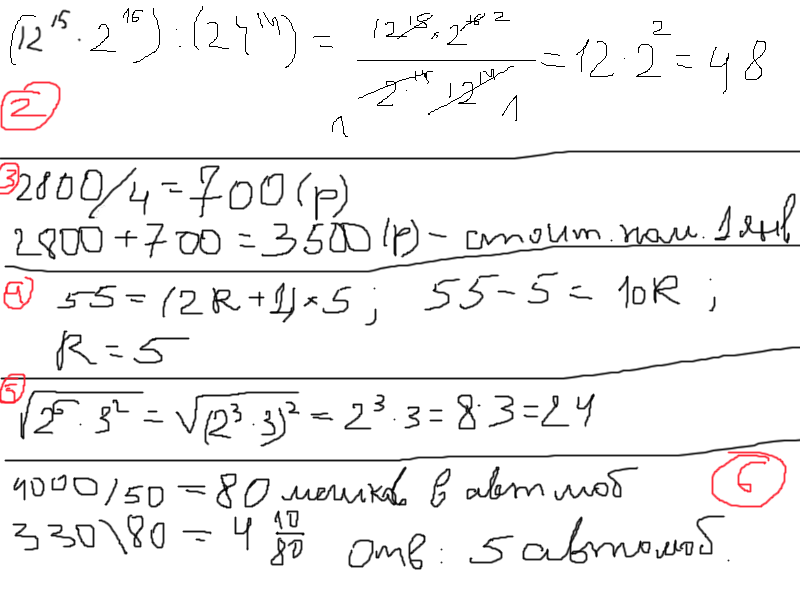 (12¹⁵ · 2¹⁶) : (24¹⁴) = (12¹⁵ · 2¹⁶ ²) / (2¹⁴ · 12¹⁴) = 12 · 2² = 48
1 1
2
3 2800/4 = 700 (р)
2800 + 700 = 3500 (р) - стоит. пам. 1 янв
4 55 = (2R + 1) × 5 ; 55 - 5 = 10R ;
R = 5
5 √(2⁶ · 3²) = √((2³ · 3)²) = 2³ · 3 = 8 · 3 = 24
4000/50 = 80 мешков в автомоб 6
330\80 = 4 10/80 Отв : 5 автомоб.